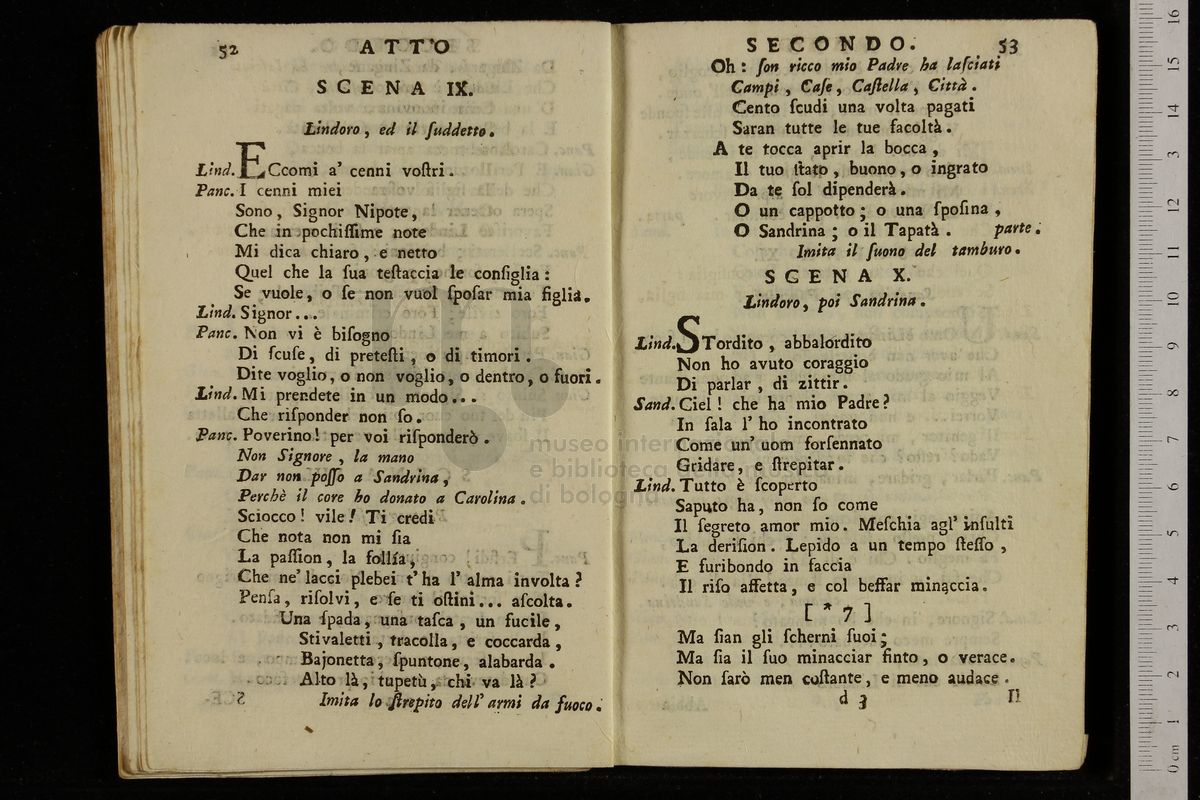 52 ATTO
SCENA IX.
Lindoro, ed il ſuddetto.
Lind. ECcomi a' cenni voſtri.
Panc. I cenni miei
Sono, Signor Nipote,
Che in pochiſſime note
Mi dica chiaro, e netto
Quel che la ſua teſtaccia le conſiglia:
Se vuole, o ſe non vuol ſpoſar mia figlia.
Lind. Signor...
Panc. Non vi è biſogno
Di ſcuſe, di preteſti, o di timori.
Dite voglio, o non voglio, o dentro, o fuori.
Lind. Mi prendete in un modo...
Che riſponder non ſo.
Panc. Poverino! per voi riſponderò.
Non Signore, la mano
Dar non poſſo a Sandrina,
Perchè il core ho donato a Carolina.
Sciocco! vile! Ti credi
Che nota non mi ſia
La paſſion, la follía,
Che ne' lacci plebei t' ha l' alma involta?
Penſa, riſolvi, e ſe ti oſtini... aſcolta.
Una ſpada, una taſca, un fucile,
Stivaletti, tracolla, e coccarda,
Bajonetta, ſpuntone, alabarda.
Alto là, tupetù, chi va là?
Imita lo ſtrepito dell' armi da fuoco.
SCE-
SECONDO. 53
Oh: ſon ricco mio Padre ha laſciati
Campi, Caſe, Caſtella, Città.
Cento ſcudi una volta pagati
Saran tutte le tue facoltà.
A te tocca aprir la bocca,
Il tuo ſtato, buono, o ingrato
Da te ſol dipenderà.
O un cappotto; o una ſpoſina,
O Sandrina; o il Tapatà. parte.
Imita il ſuono del tamburo.
SCENA X.
Lindoro, poi Sandrina.
Lind. STordito, abbalordito
Non ho avuto coraggio
Di parlar, di zittir.
Sand. Ciel! che ha mio Padre?
In ſala l' ho incontrato
Come un' uom forſennato
Gridare, e ſtrepitar.
Lind. Tutto è ſcoperto
Saputo ha, non ſo come
Il ſegreto amor mio. Meſchia agl' inſulti
La deriſion. Lepido a un tempo ſteſſo,
E furibondo in faccia
Il riſo affetta, e col beffar minaccia.
[ * 7 ]
Ma ſian gli ſcherni ſuoi;
Ma ſia il ſuo minacciar finto, o verace.
Non ſarò men coſtante, e meno audace.
d 3 Il
museo internazionale
e biblioteca della musica
di bologna
0 cm 1 2 3 4 5 6 7 8 9 10 11 12 13 14 15 16